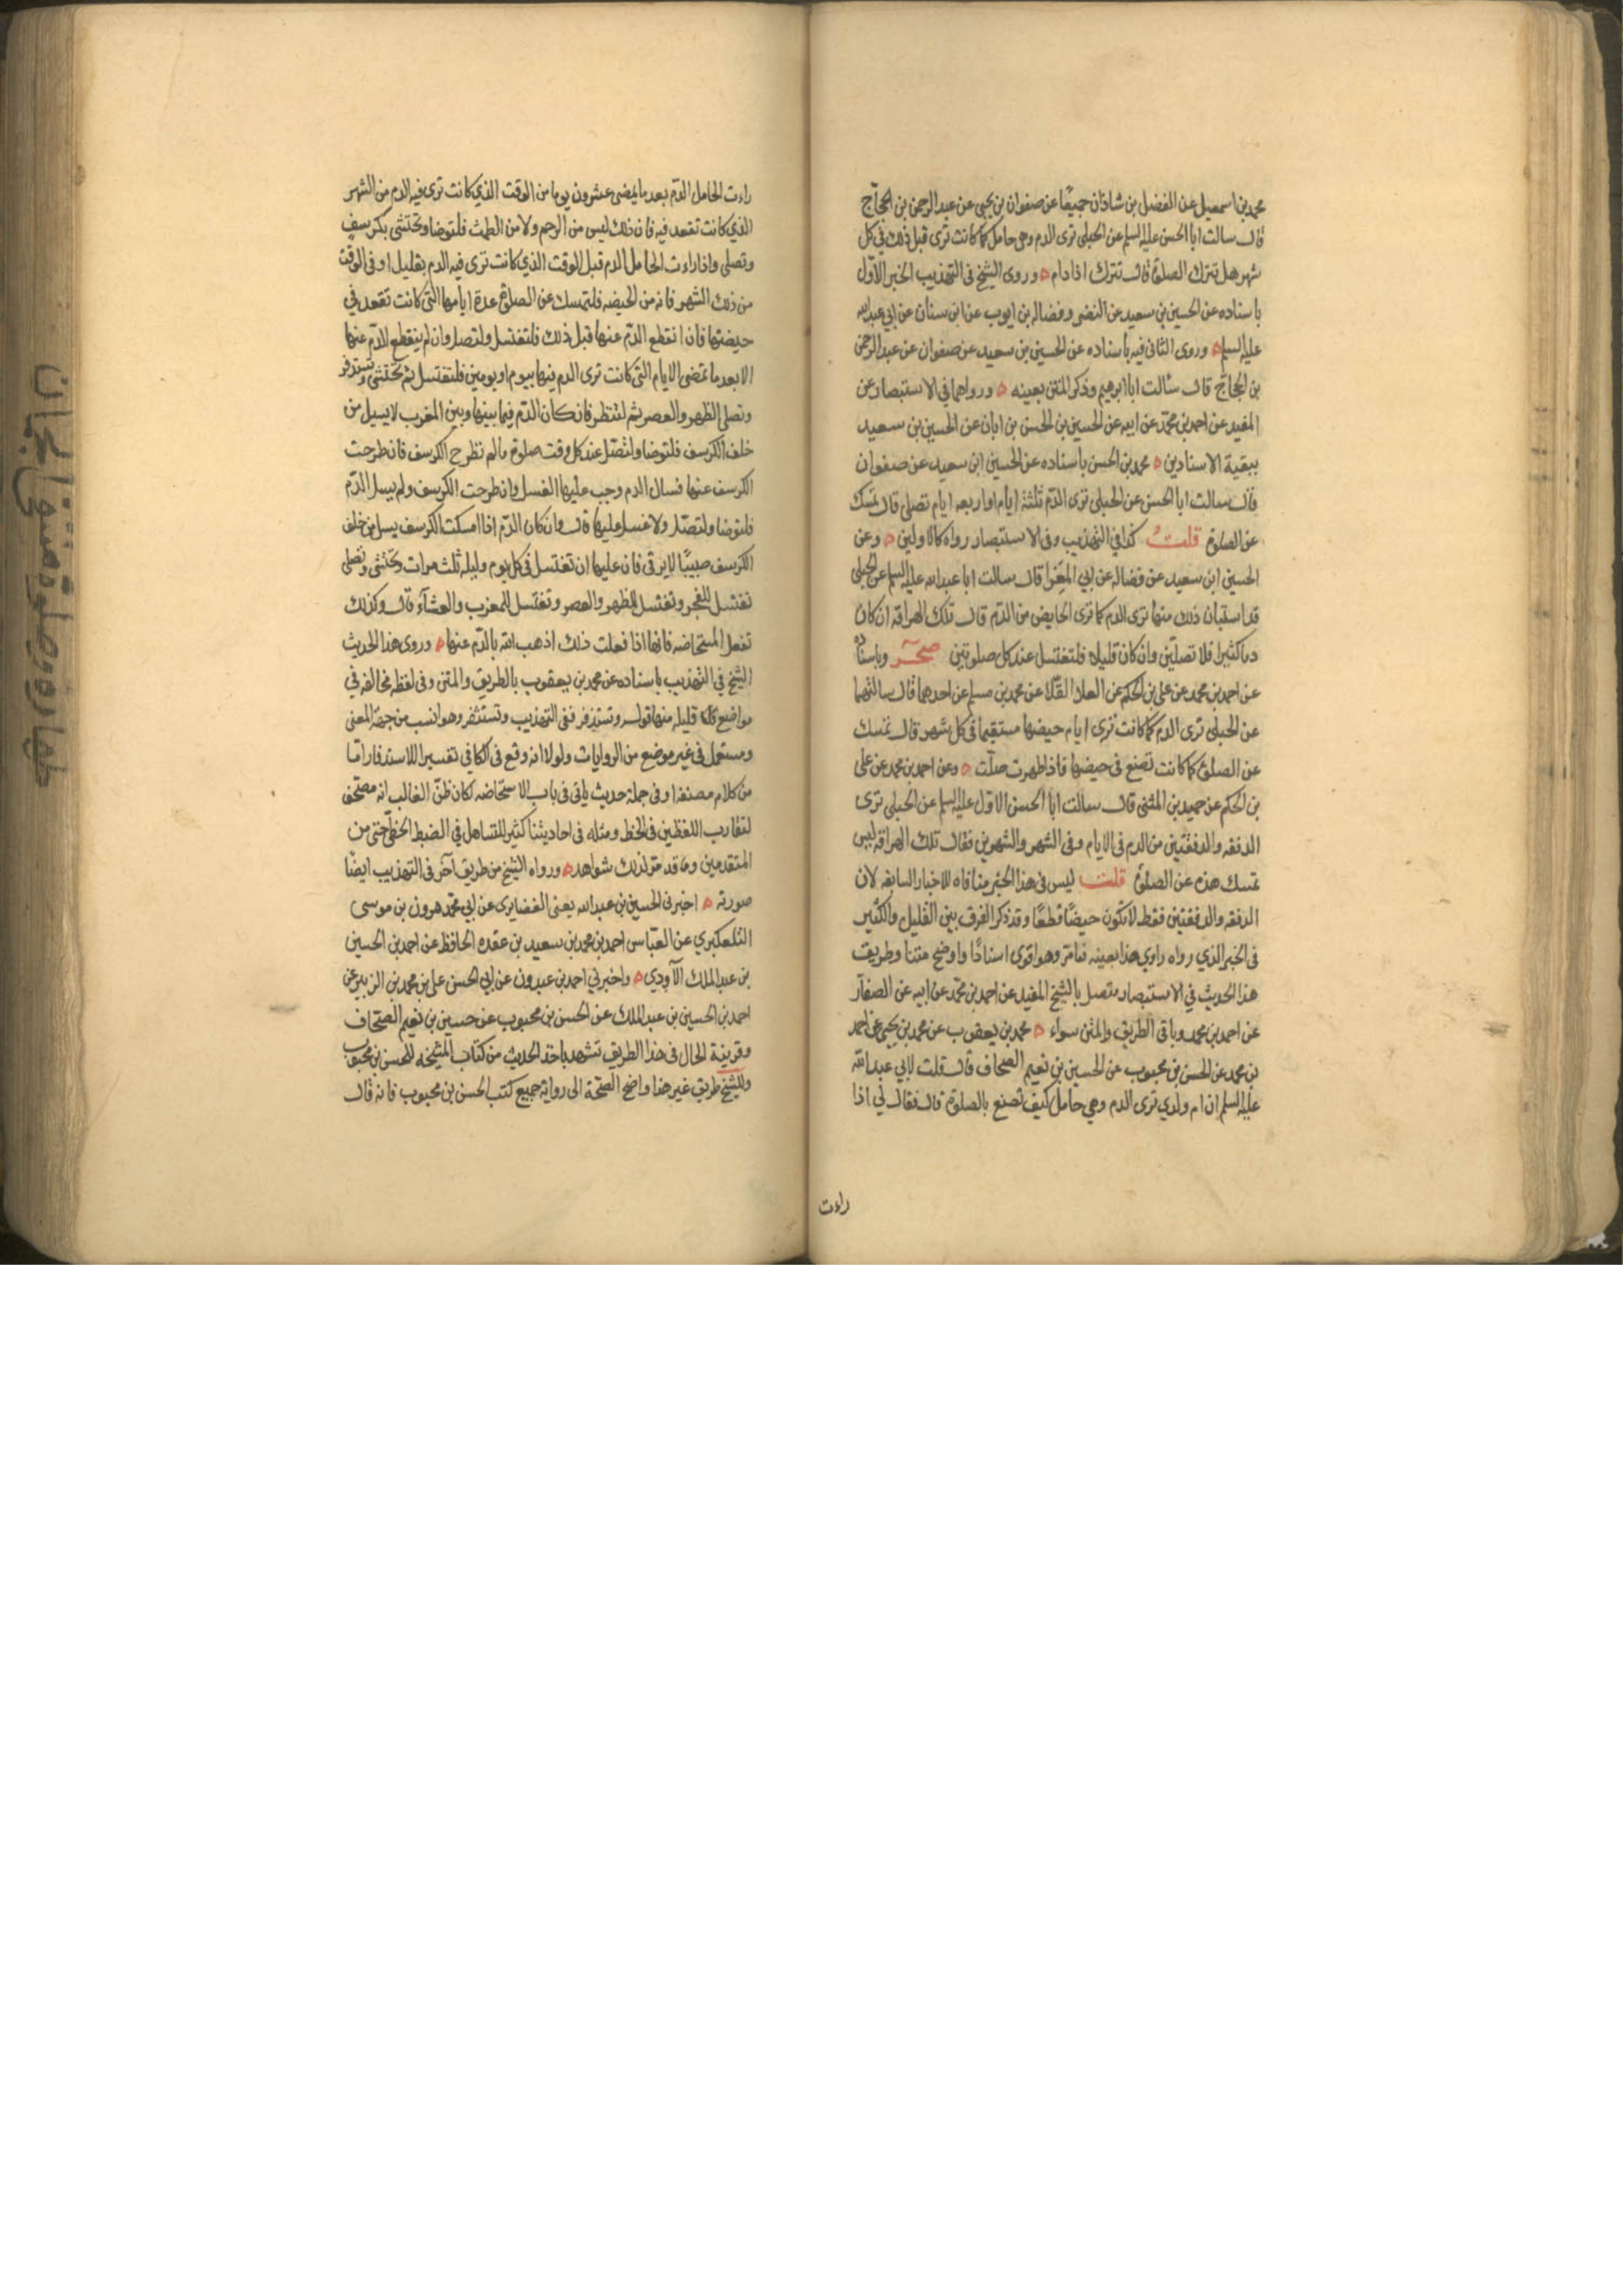 محمد بن اسمعيل عن الفضل بن شاذان جميعًا عن صفوان بن يحيى عن عبد الرحمن بن الحجّاج
قال سالت ابا الحسن عليه السلم عن الحبلى ترى الدم وهي حامل كما كانت ترى قبل ذلك في كل
شهر هل تترك الصلوة قال تترك اذا دام ٥ وروى الشيخ في التهذيب الخبر الاوّل
باسناده عن الحسين بن سعيد عن النضر وفضاله بن ايوب عن ابن سنان عن ابي عبد الله
عليه السلم ٥ وروى الثاني فيه باسناده عن الحسين بن سعيد عن صفوان عن عبد الرحمن
بن الحجاج قال سألت ابا ابرهيم وذكر المتن بعينه ٥ ورواهما في الاستبصار عن
المفيد عن احمد بن محمّد عن ابيه عن الحسين بن الحسن بن ابان عن الحسين بن سعيد
ببقية الاسنادين ٥ محمد بن الحسن باسناده عن الحسين ابن سعيد عن صفوان
قال سالت ابا الحسن عن الحبلى ترى الدّم ثلثة ايام او اربعه ايام تصلي قال تمسك
عن الصلوة قلتُ كذا في التهذيب وفي الاستبصار رواه كالاولين ٥ وعن
الحسين ابن سعيد عن فضاله عن ابي المغرا قال سالت ابا عبد الله عليه السلم عن الحبلى
قد استبان ذلك منها ترى الدم كما ترى الحايض من الدّم قال تلك الهراقه ان كان
دما كثيرا فلا تصلّين وان كان قليلا فلتغتسل عند كل صلوتين صحر وباسناده
عن احمد بن محمد عن علي بن الحكم عن العلا القلا عن محمد بن مسلم عن احدهما قال سالتهما
عن الحبلى ترى الدم كما كانت ترى ايام حيضها مستقيما في كل شهر قال تمسك
عن الصلوة كما كانت تصنع في حيضها فاذا طهرت صلّت ٥ وعن احمد بن محمد عن علي
بن الحكم عن حميد بن المثنى قال سالت ابا الحسن الاول عليه السلم عن الحبلى ترى
الدفقه والدفقتين من الدم في الايام وفي الشهر والشهرين فقال تلك الهراقه ليس
تمسك هذه عن الصلوة قلت ليس في هذا الخبر منافاه للاخبار السابقه لان
الدفقه والدفقتين فقط لا تكون حيضًا قطعًا وقد ذكر الفرق بين القليل والكثير
في الخبر الذي رواه راوي هذا بعينه فيما مر وهو اقوى اسنادًا واوضح متنا وطريق
هذا الحديث في الاستبصار متصل بالشيخ المفيد عن احمد بن محمّد عن ابيه عن الصفار
عن احمد بن محمد وباقي الطريق والمتن سواء ٥ محمد بن يعقوب عن محمد بن يحيى عن احمد
بن محمد عن الحسن بن محبوب عن الحسين بن نعيم الصحاف قال قلت لابي عبد الله
عليه السلم ان ام ولدي ترى الدم وهي حامل كيف تصنع بالصلوة قال فقال لي اذا
راءت
راءت الحامل الدّم بعد ما يمضي عشرون يوما من الوقت الذي كانت ترى فيه الدم من الشهر
الذي كانت تقعد فيه فان ذلك ليس من الرحم ولا من الطمث فلتوضا وتحتشي بكرسف
وتصلي واذا راءت الحامل الدم قبل الوقت الذي كانت ترى فيه الدم بقليل او في الوقت
من ذلك الشهر فانه من الحيضه فلتمسك عن الصلوة عدة ايامها التي كانت تقعد في
حيضتها فان انقطع الدّم عنها قبل ذلك فلتغتسل ولتصل وان لم ينقطع الدّم عنها
الا بعد ما تمضي الايام التي كانت ترى الدم فيها بيوم او يومين فلتغتسل ثم تحتشي وتستذفر
وتصلي الظهر والعصر ثم لتنظر فان كان الدّم فيما بينها وبين المغرب لا يسيل من
خلف الكرسف فلتوضا ولتصّل عند كل وقت صلوة ما لم تطرح الكرسف فان طرحت
الكرسف عنها فسال الدم وجب عليها الغسل وان طرحت الكرسف ولم يسل الدّم
فلتوضا ولتصّل ولا غسل عليها قال وان كان الدّم اذا امسكت الكرسف يسيل من خلف
الكرسف صبيبًا لا يرقى فان عليها ان تغتسل في كل يوم وليله ثلث مرات وتحتشي وتصلي
تغتسل للفجر وتغتسل للظهر والعصر وتغتسل للمغرب والعشاء قال وكذلك
تفعل المستحاضه فانها اذا فعلت ذلك اذهب الله بالدّم عنها ٥ وروى هذا الحديث
الشيخ في التهذيب باسناده عن محمد بن يعقوب بالطريق والمتن وفي لفظه مخالفه في
مواضع قليله منها قوله وتستذفر ففي التهذيب وتستثفر وهو انسب من جهة المعنى
ومستعمل في غير موضع من الروايات ولولا انه وقع في الكافي تفسير اللاستذفار امّا
من كلام مصنفه او في جملة حديث ياتي في باب الاستحاضه لكان ظنّ الغالب انه مصحّف
لتقارب اللفظين في الخط ومثله في احاديثنا كثير للتساهل في الضبط الخطّي حتى من
المتقدمين وقد مرّ لذلك شواهد ٥ ورواه الشيخ من طريق آخر في التهذيب ايضًا
صورته ٥ اخبرني الحسين بن عبد الله يعني الغضايري عن ابي محمّد هرون بن موسى
التلعكبري عن العبّاس احمد بن محمد بن سعيد بن عقده الحافظ عن احمد بن الحسين
بن عبد الملك الآودي ٥ واخبرني احمد بن عبدون عن ابي الحسن علي بن محمد بن الزبير عن
احمد بن الحسين بن عبد الملك عن الحسن بن محبوب عن حسين بن نعيم الصحّاف
وقرينة الحال في هذا الطريق تشهد باخذ الحديث من كتاب المشيخه للحسن بن محبوب
وللشيخ طريق غير هذا واضح الصحّة الى رواية جميع كتب الحسن بن محبوب فانه قال